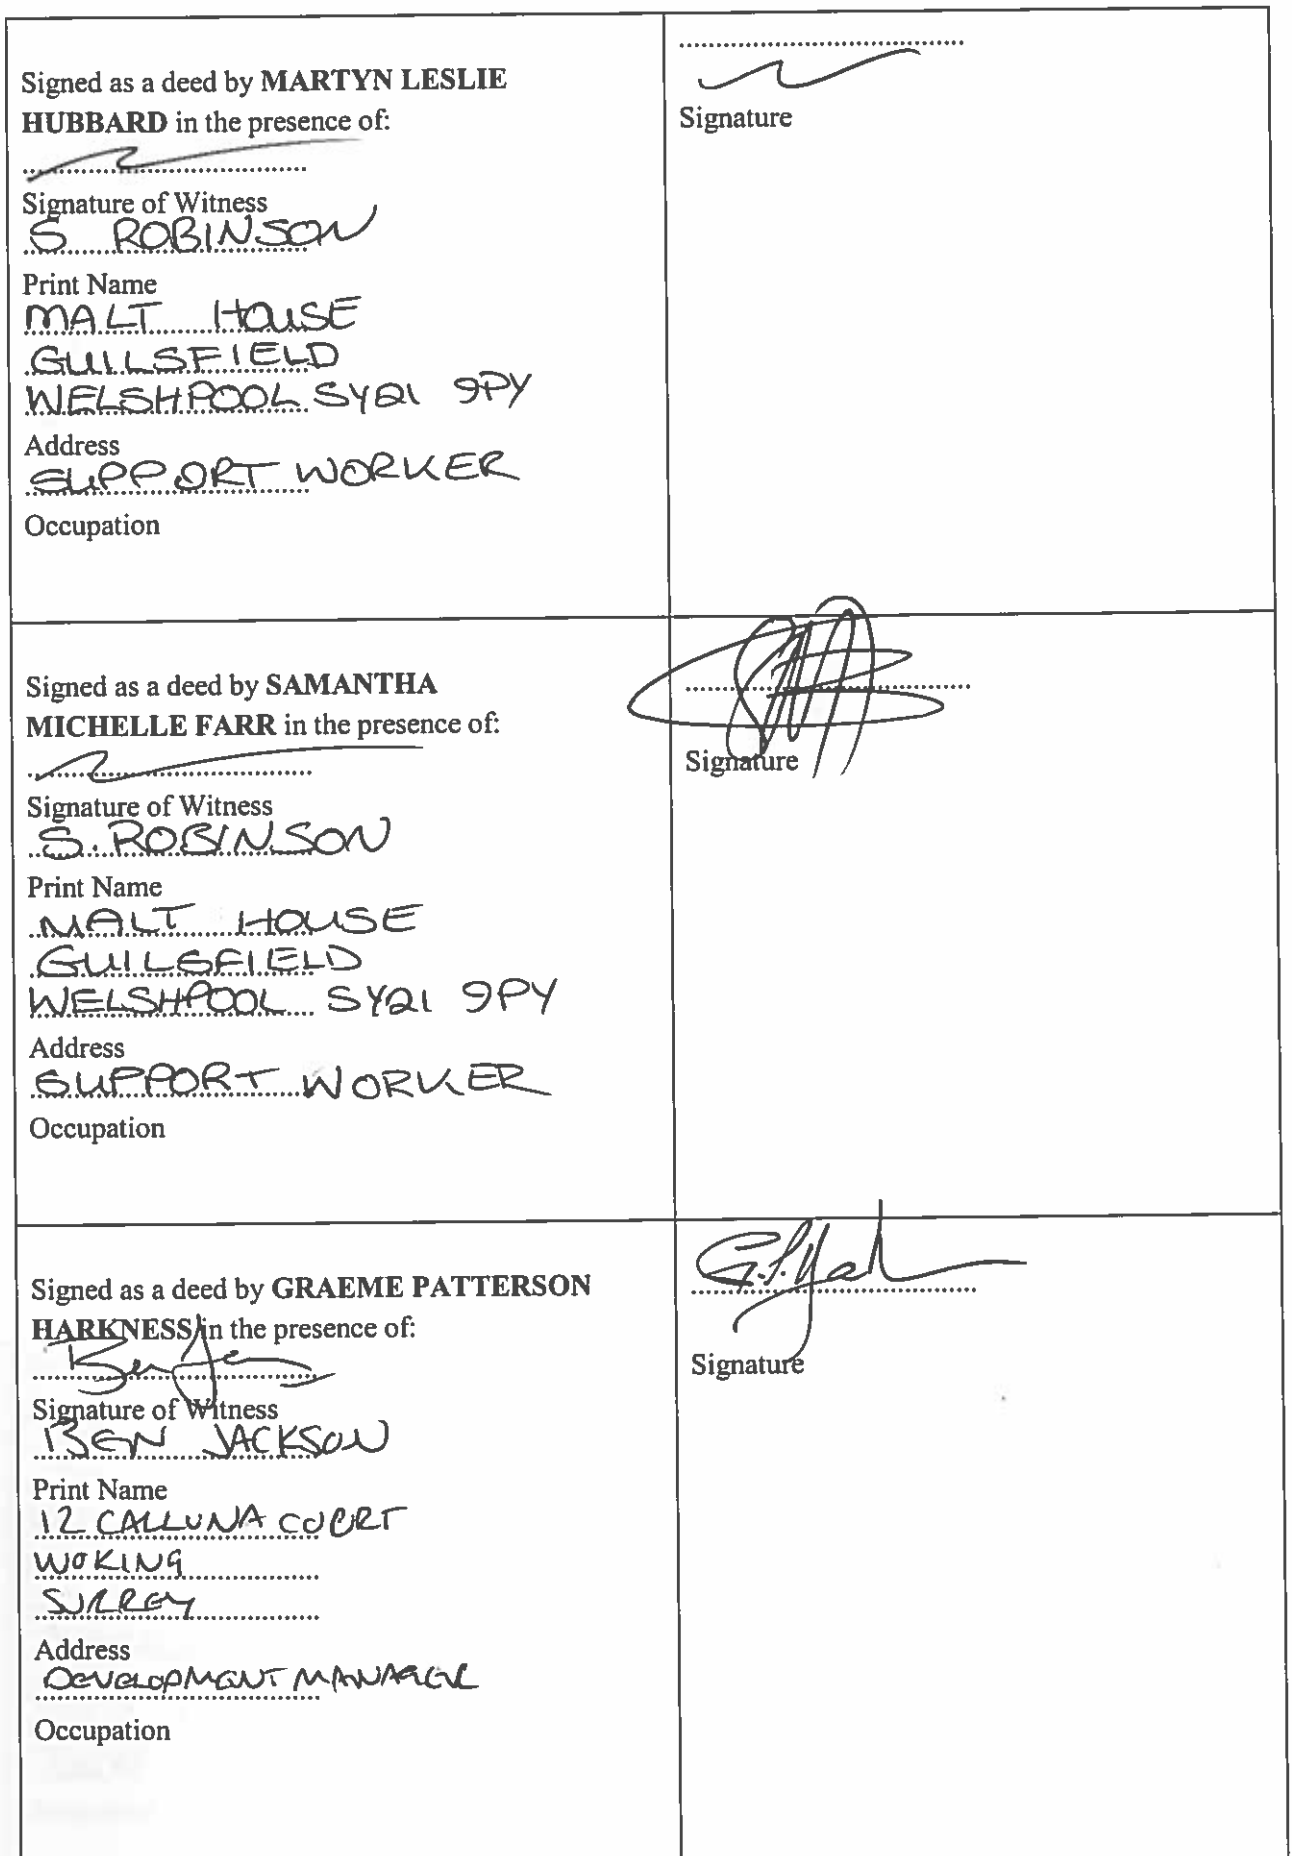 Signed as a deed by MARTYN LESLIE
HUBBARD in the presence of:
Signature of Witness
S ROBINSON
Print Name
MALT HOUSE
GUILSFIELD
WELSHPOOL SY21 9PY
Address
SUPPORT WORKER
Occupation
Signature
Signed as a deed by SAMANTHA
MICHELLE FARR in the presence of:
Signature of Witness
S. ROBINSON
Print Name
MALT HOUSE
GUILSFIELD
WELSHPOOL SY21 9PY
Address
SUPPORT WORKER
Occupation
Signature
Signed as a deed by GRAEME PATTERSON
HARKNESS in the presence of:
Signature of Witness
BEN JACKSON
Print Name
12 CALLUNA COURT
WOKING
SURREY
Address
DEVELOPMENT MANAGER
Occupation
Signature